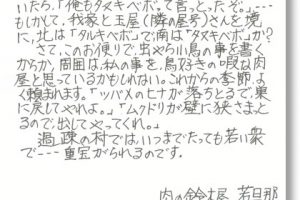 いたら、「俺もタタキベボ。って言っとったぞ。」---
もしかして、我家と玉屋(隣の屋号)さんを境
に、北は「タルキベボ」で南は「タタキベボ」か?
さて、このお便りで、虫や小鳥の事を書く
からか、周囲は、私の事を、鳥好きの殿な肉
屋と思っているかもしれない。これからの季節、
よく頼まれます。「ツバメのヒナが落ちとるで、巣
に戻してやれよ。」「ムクドリが壁に狭さまっと
るので、出してやってくれ。」
過疎の村では、いつまでたっても若い衆
で---重宝がられるのです。
肉の鈴木屋 若旦那